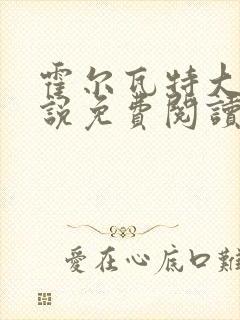 霍尔瓦特大
說免費閱讀
愛在心底口難